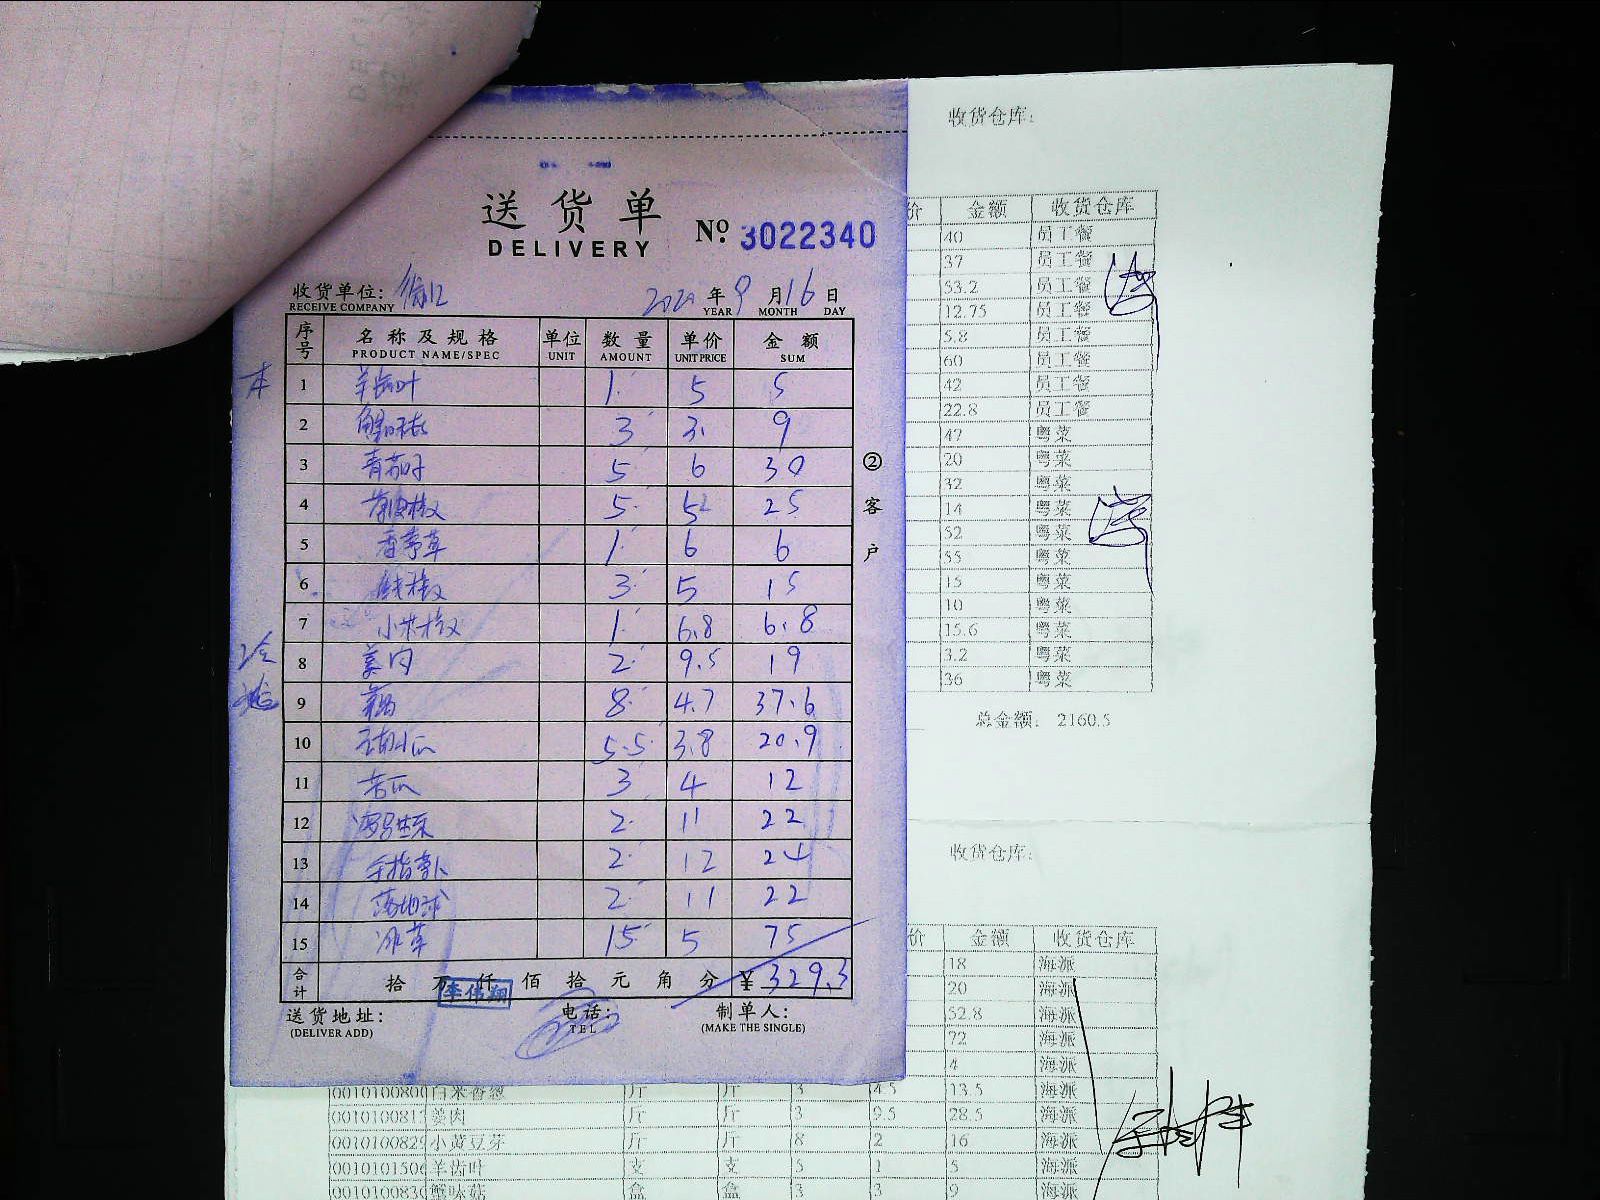 送货单
DELIVERY
№ 3022340
收货单位:
RECEIVE COMPANY
2020 年 9 月 16 日
YEAR MONTH DAY
序号 名称及规格 单位 数量 单价 金额
PRODUCT NAME/SPEC UNIT AMOUNT UNIT PRICE SUM
1 羊齿叶 1 5 5
2 蟹味菇 3 3 9
3 青苏叶 5 6 30
4 5 5 25
5 香茅草 1 6 6
6 3 5 15
7 小米椒 1 6.8 6.8
8 姜肉 2 9.5 19
9 8 4.7 37.6
10 5.5 3.8 20.9
11 苦瓜 3 4 12
12 2 11 22
13 手指萝卜 2 12 24
14 2 11 22
15 冰草 15 5 75
合计 拾 万 仟 佰 拾 元 角 分 ¥ 329.3
李伟翔
送货地址:
(DELIVER ADD)
电话:
TEL
制单人:
(MAKE THE SINGLE)
②客户
收货仓库:
价 金额 收货仓库
40 员工餐
37 员工餐
53.2 员工餐
12.75 员工餐
5.8 员工餐
60 员工餐
42 员工餐
22.8 员工餐
47 粤菜
20 粤菜
32 粤菜
14 粤菜
52 粤菜
55 粤菜
15 粤菜
10 粤菜
15.6 粤菜
3.2 粤菜
36 粤菜
总金额: 2160.5
收货仓库:
价 金额 收货仓库
18 海派
20 海派
52.8 海派
72 海派
4 海派
斤 斤 3 4.5 13.5 海派
姜肉 斤 斤 3 9.5 28.5 海派
小黄豆芽 斤 斤 8 2 16 海派
羊齿叶 支 支 5 1 5 海派
蟹味菇 盒 盒 3 3 9 海派